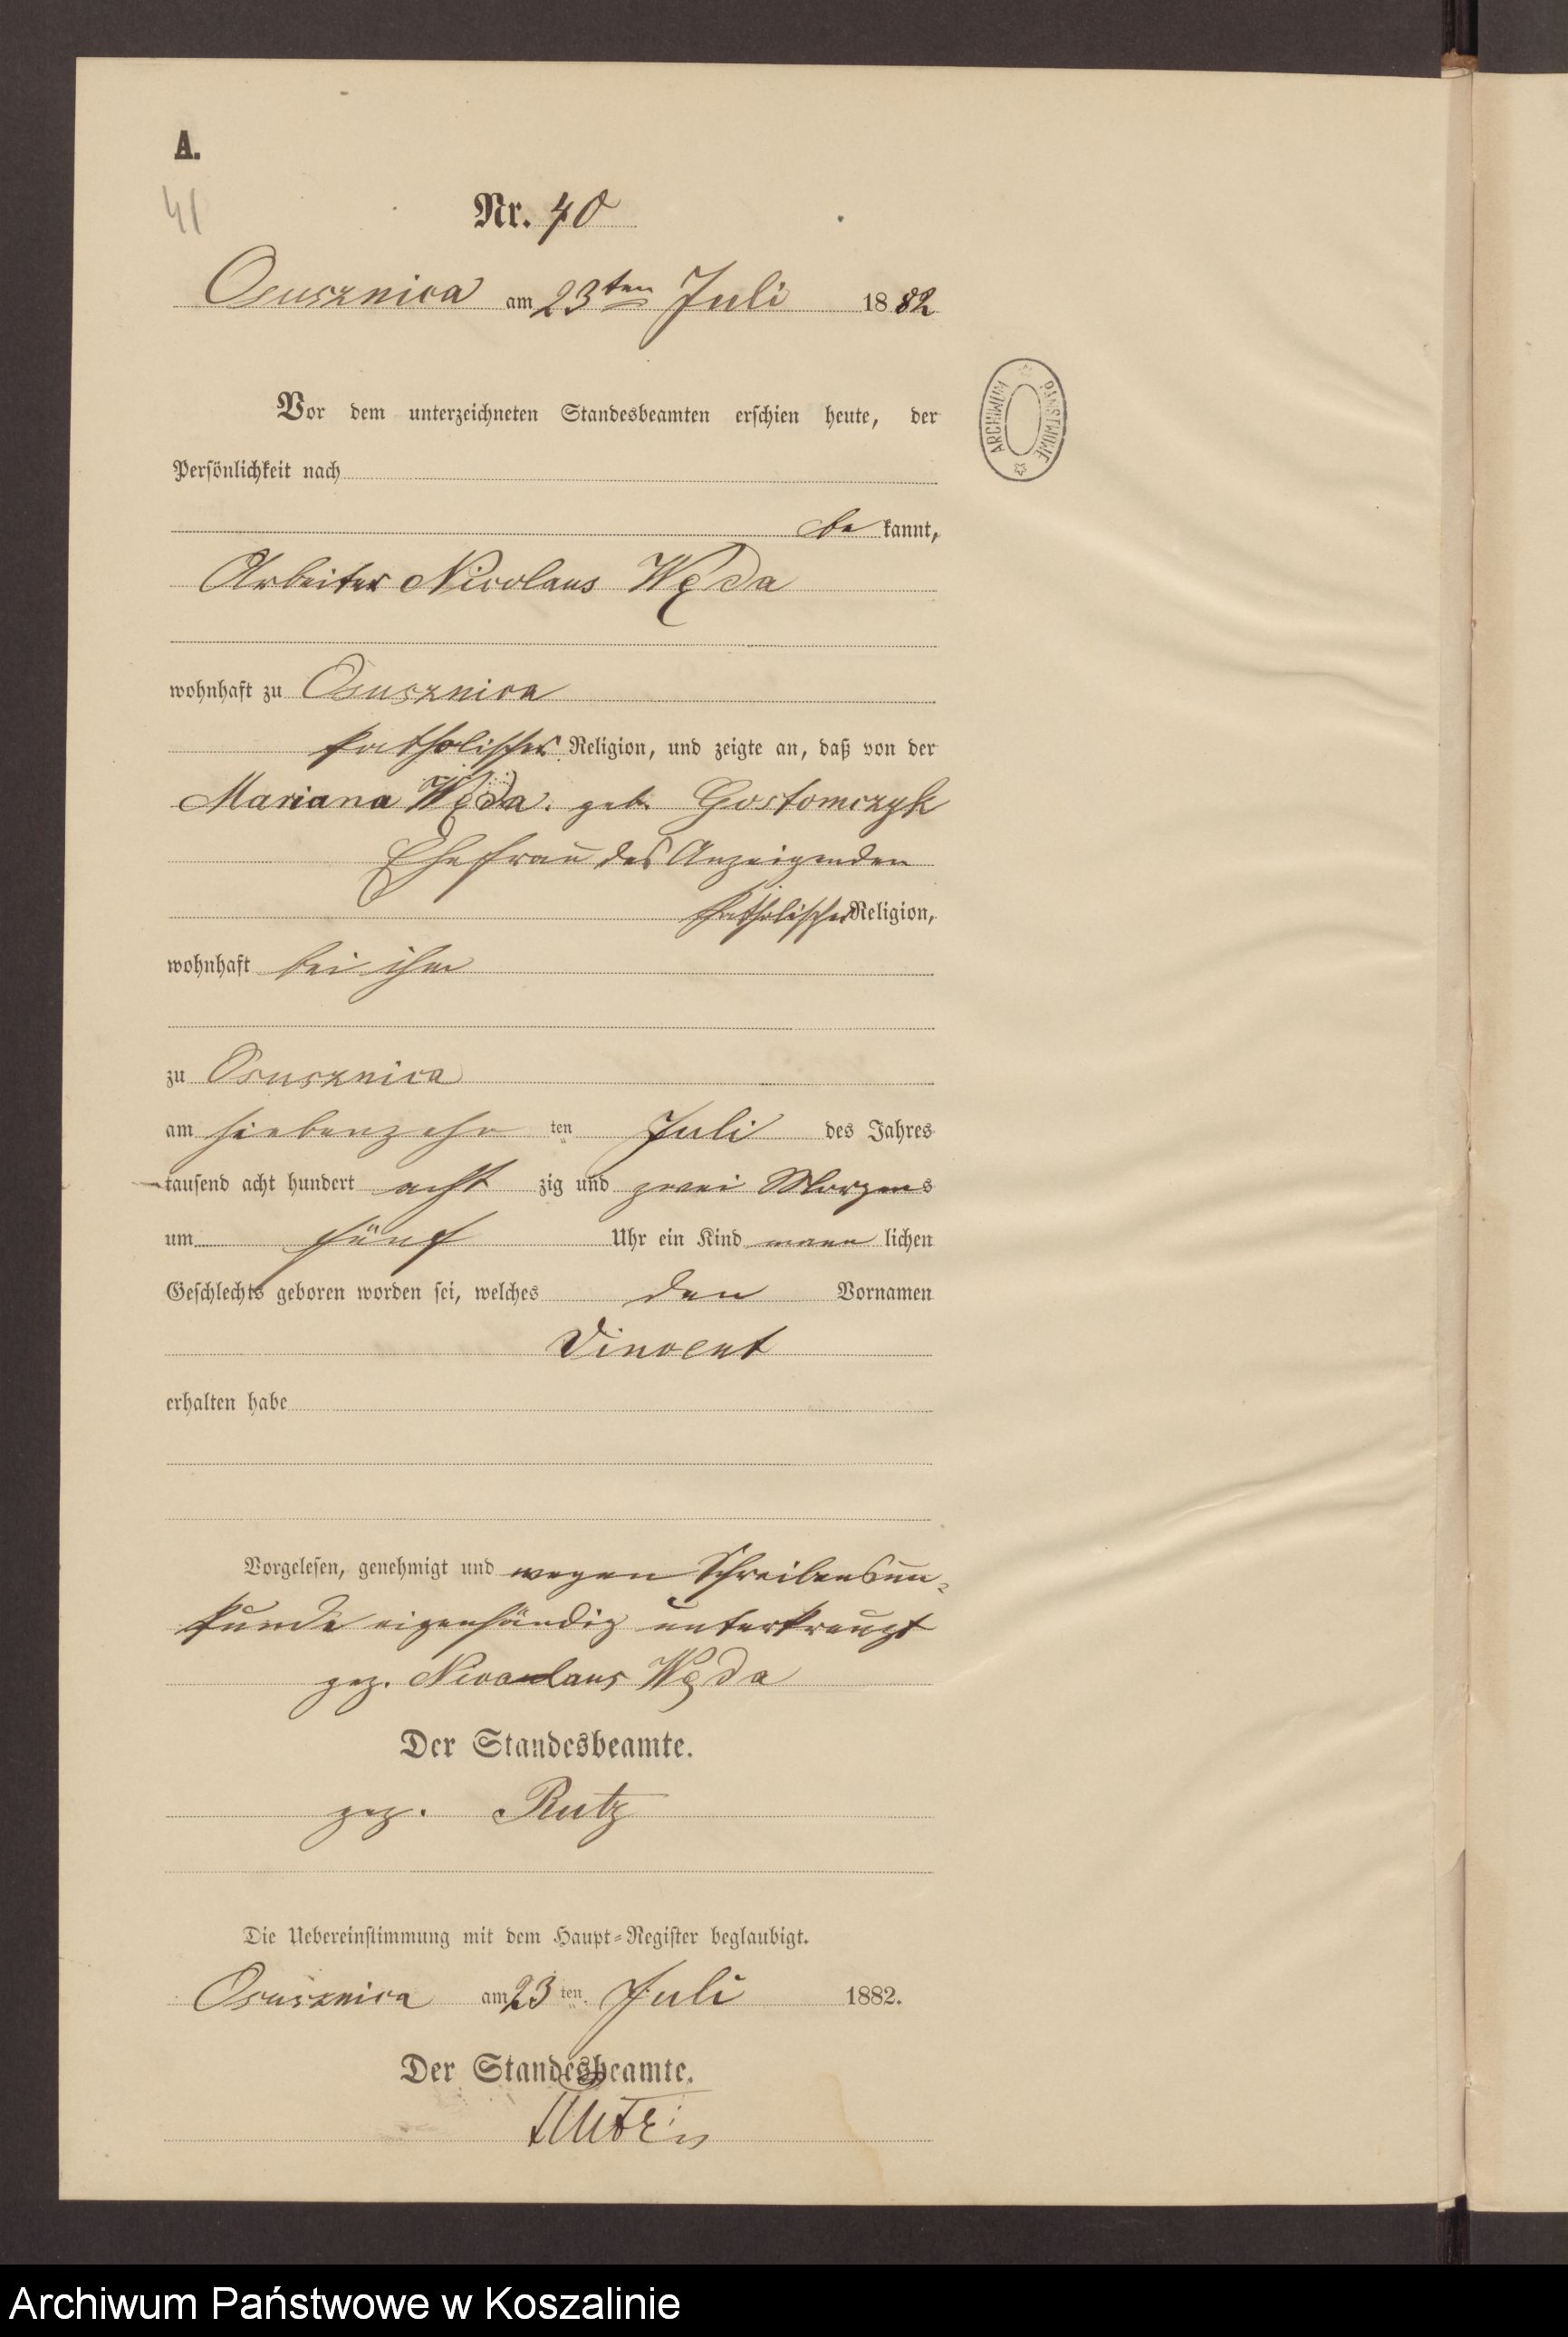 A.
41
Nr. 40
Osusznica am 23ten Juli 1882
ARCHIWUM PAŃSTWOWE
Vor dem unterzeichneten Standesbeamten erschien heute, der
Persönlichkeit nach
be kannt,
Arbeiter Nicolaus Węda
wohnhaft zu Osusznica
katholischer Religion, und zeigte an, daß von der
Mariana Węda. geb. Gostomczyk
Ehefrau des Anzeigenden
katholischer Religion,
wohnhaft bei ihm
zu Osusznica
am siebenzehn ten Juli des Jahres
tausend acht hundert acht zig und zwei Morgens
um fünf Uhr ein Kind mann lichen
Geschlechts geboren worden sei, welches den Vornamen
Vincent
erhalten habe
Vorgelesen, genehmigt und wegen Schreibensun-
kunde eigenhändig unterkreuzt
gez. Nicolaus Węda
Der Standesbeamte.
gez. Rutz
Die Uebereinstimmung mit dem Haupt-Register beglaubigt.
Osusznica am 23 ten Juli 1882.
Der Standesbeamte.
Rutz
Archiwum Państwowe w Koszalinie